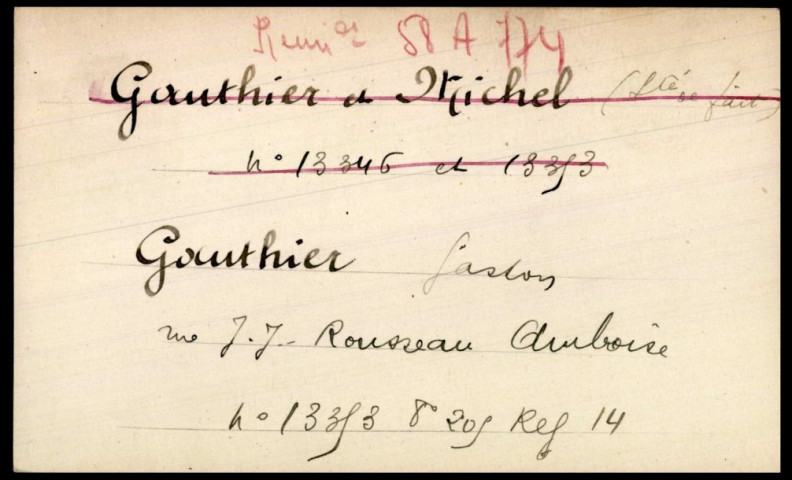 58 A 774
Gauthier et Michel (Sté de fait)
n° 13346 et 13353
Gauthier Gaston
rue J.J. Rousseau Amboise
n° 13353 f° 205 Reg 14